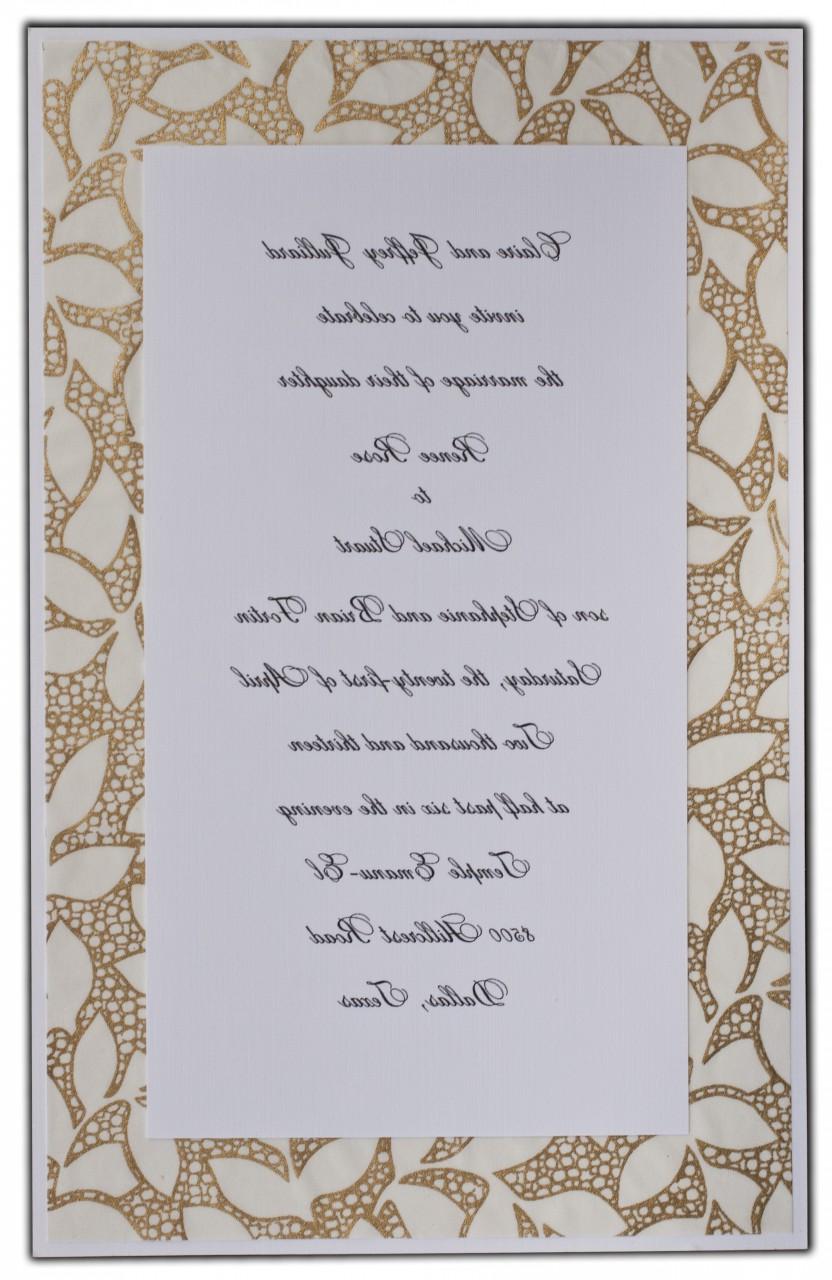 Claire and Jeffrey Julliard
invite you to celebrate
the marriage of their daughter
Renee Rose
to
Michael Stuart
son of Stephanie and Brian Fortin
Saturday, the twenty-first of April
Two thousand and thirteen
at half past six in the evening
Temple Emanu-El
8500 Hillcrest Road
Dallas, Texas